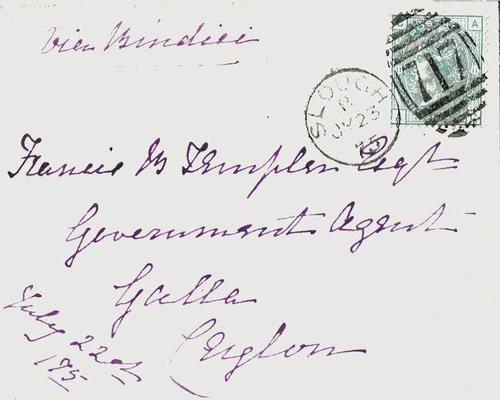 Via Bindisi
C A
SLOUGH
B
JY 23
75
717
Francis B Templer Esqr
Government Agent
Galle
Ceylon
July 22nd
1875